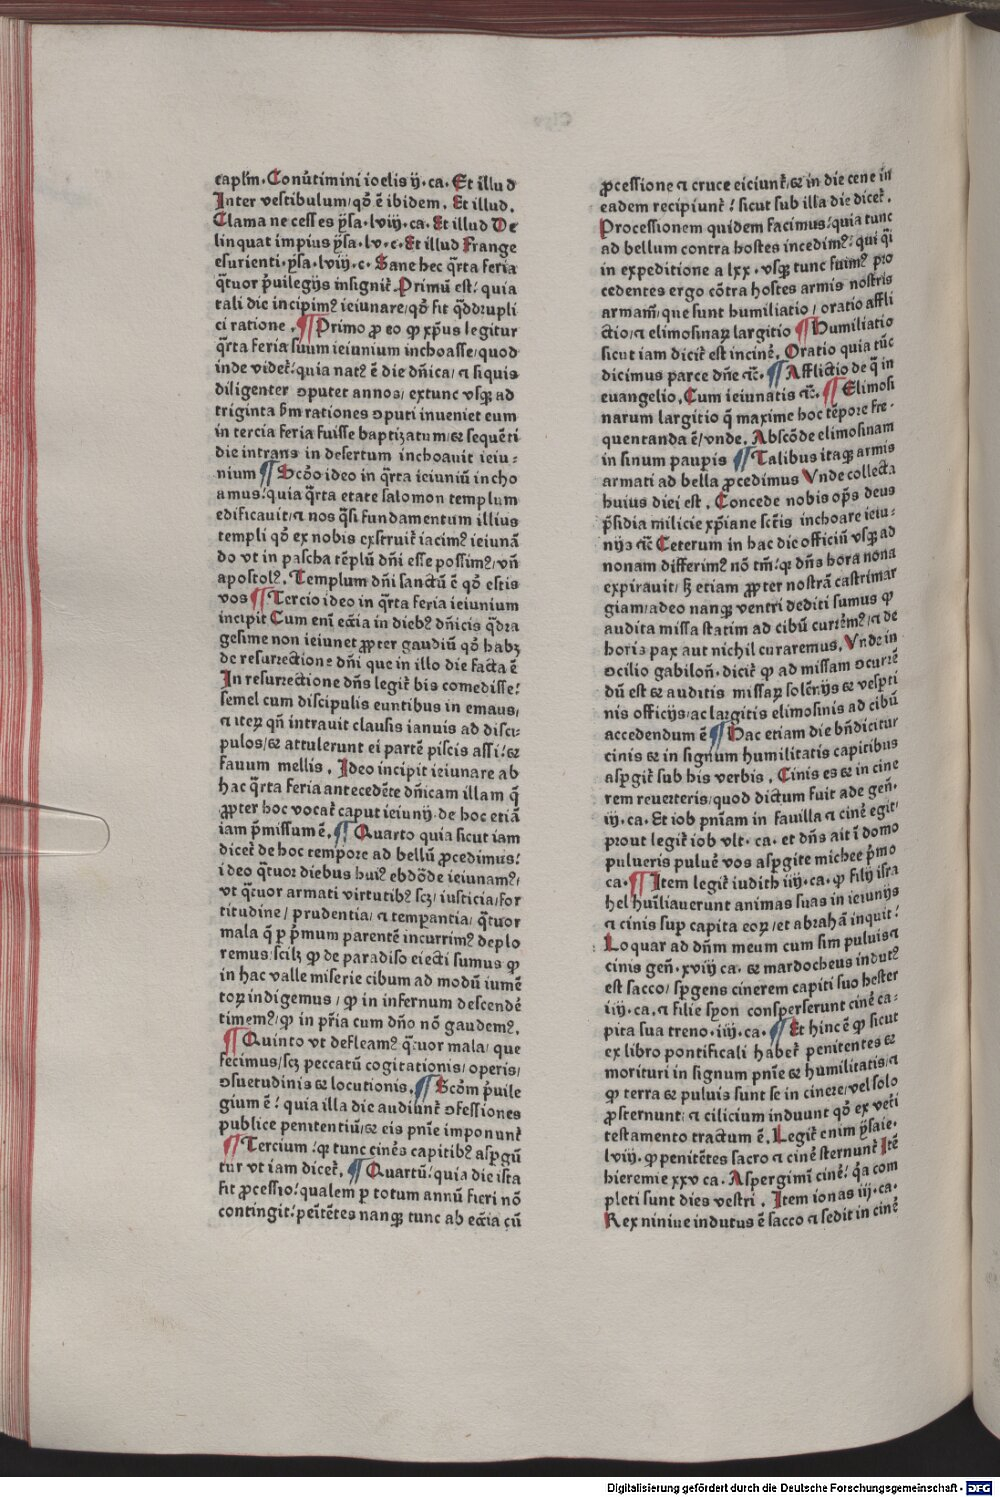 capl̄m. Conũtimini ioelis ij. ca. Et illud
Inter vestibulum/qđ ē ibidem. Et illud.
Clama ne cesses ysa. lviij. ca. Et illud De
linquat impius ysa. lv. c. Et illud Frange
esurienti. ysa. lviij. c. Sane hec q̃rta feria
q̃tuor p̃uilegijs insignit̃. Primũ est/ quia
tali die incipimꝰ ieiunare/qđ fit q̃druplī
ci ratione. ¶ Primo ꝓ eo ꝙ xp̃us legitur
q̃rta feria suum ieiunium inchoasse/quod
inde videt̃/quia natꝰ ē die dñica/ ⁊ si quis
diligenter ↄputet annos/extunc vsqꝫ ad
triginta ẜm rationes ↄputi inueniet eum
in tercia feria fuisse baptizatum/⁊ sequēti
die intrans in desertum inchoauit ieiu-
nium ¶ Scđo ideo in q̃rta ieiuniũ incho
amus/quia q̃rta etate salomon templum
edificauit/⁊ nos q̃si fundamentum illius
templi qđ ex nobis exstruit̃ iacimꝰ ieiunā
do vt in pascha tēplũ dñi esse possimꝰ/ vñ
apostolꝰ. Templum dñi sanctũ ē qđ estis
vos ¶ Tercio ideo in q̃rta feria ieiunium
incipit Cum eni ecc̃ia in diebꝰ dñicis q̃dra
gesime non ieiunet ꝓpter gaudiũ qđ habꝫ
de resurrectione dñi que in illo die facta ē
In resurrectione dñs legit̃ bis comedisse/
semel cum discipulis euntibus in emaus/
⁊ iteꝝ qñ intrauit clausis ianuis ad disci-
pulos/⁊ attulerunt ei partē piscis assi/⁊
fauum mellis. Ideo incipit ieiunare ab
hac q̃rta feria antecedēte dñicam illam q̃
ꝓpter hoc vocat̃ caput ieiunij. de hoc etiā
iam p̃missum ē. ¶ Quarto quia sicut iam
dicet̃ de hoc tempore ad bellũ ꝓcedimus/
ideo q̃tuor diebus huiꝰ ebdōde ieiunamꝰ/
vt q̃tuor armati virtutibꝰ scꝫ/ iusticia/for
titudine/ prudentia/ ⁊ temperantia/ q̃tuor
mala q̃ ꝑ p̃mum parentē incurrimꝰ deplo
remus/scilꝫ ꝙ de paradiso eiecti sumus ꝙ
in hac valle miserie cibum ad modũ iumē
toꝝ indigemus/ ꝙ in infernum descendē
timemꝰ/ꝙ in pr̃ia cum dño nō gaudemꝰ.
¶ Quinto vt defleamꝰ q̃tuor mala/ que
fecimus/scꝫ peccatũ cogitationis/operis/
ↄsuetudinis ⁊ locutionis. ¶ Scđm p̃uile
gium ē/ quia illa die audiunt̃ ↄfessiones
publice penitentiũ/⁊ eis pnīe imponunt̃
¶ Tercium/qꝛ tunc cinēs capitibꝰ aspgũ
tur vt iam dicet̃. ¶ Quartũ/quia die ista
fit ꝓcessio/qualem ꝑ totum annũ fieri nō
contingit/penitētes nanqꝫ tunc ab ecc̃ia cũ
ꝓcessione ⁊ cruce eiciunt̃/⁊ in die cene in
eadem recipiunt̃/ sicut sub illa die dicet̃.
Processionem quidem facimus/quia tunc
ad bellum contra hostes incedimꝰ/ qui q̃i
in expeditione a lxx. vsqꝫ tunc fuimꝰ pro
cedentes ergo cōtra hostes armis nostris
armam̃/que sunt humiliatio/ oratio affli
ctio/⁊ elimosinaꝝ largitio ¶ Humiliatio
sicut iam dicit̃ est incinē. Oratio quia tũc
dicimus parce dñe ⁊c̃. ¶ Afflictio de q̃ in
euangelio. Cum ieiunatis ⁊c̃. ¶ Elimosi
narum largitio q̃ maxime hoc tēpore fre-
quentanda ē/vnde. Abscōde elimosinam
in sinum pauperis ¶ Talibus itaqꝫ armis
armati ad bella ꝓcedimus Vnde collecta
huius diei est. Concede nobis op̃s deus
p̃sidia milicie xp̃iane sctīs inchoare ieiu-
nijs ⁊c̃ Ceterum in hac die officiũ vsqꝫ ad
nonam differimꝰ nō tm̃/qꝛ dñs hora nona
expirauit/ sꝫ etiam ꝓpter nostrā castrimar
giam/adeo nanqꝫ ventri dediti sumus ꝙ
audita missa statim ad cibũ currēmꝰ/⁊ de
horis pax aut nichil curaremus. Vnde in
ↄcilio gabiloñ. dicit̃ ꝙ ad missam ↄcurrē
dũ est ⁊ auditis missaꝝ solēnijs ⁊ vespti
nis officijs/ac largitis elimosinis ad cibũ
accedendum ē ¶ Hac etiam die bñdicitur
cinis ⁊ in signum humilitatis capitibus
aspgit̃ sub his verbis. Cinis es ⁊ in cine
rem reuerteris/quod dictum fuit ade geñ.
iij. ca. Et iob pnīam in fauilla ⁊ cinē egit/
prout legit̃ iob vlt. ca. et dñs ait ī domo
pulueris puluē vos aspgite michee p̃mo
ca. ¶ Item legit̃ iudith iiij. ca. ꝙ filij isra
hel hũiliauerunt animas suas in ieiunijs
⁊ cinis sup capita eoꝝ/et abrahā inquit/
Loquar ad dñm meum cum sim puluis⁊
cinis geñ. xviij ca. ⁊ mardocheus indutꝰ
est sacco/ spgens cinerem capiti suo hester
iiij. ca. ⁊ filie syon consperserunt cinē ca-
pita sua treno. iiij. ca. ¶ Et hinc ē ꝙ sicut
ex libro pontificali habet̃ penitentes ⁊
morituri in signum pnīe ⁊ humilitatis/⁊
ꝙ terra ⁊ puluis sunt se in cinere/vel solo
ꝓsternunt/ ⁊ cilicium induunt qđ ex vetĩ
testamento tractum ē. Legit̃ enim ysaie.
lviij. ꝙ penitētes sacro ⁊ cinē sternunt̃ Itē
hieremie xxv ca. Aspergimĩ cinē/ q̃a com
pleti sunt dies vestri. Item ionas iij. ca.
Rex niniue indutus ē sacco ⁊ sedit in cinē
Digitalisierung gefördert durch die Deutsche Forschungsgemeinschaft - DFG